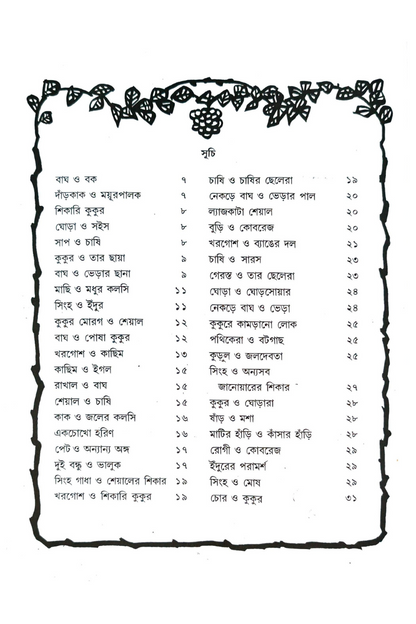 সূচি
বাঘ ও বক ৭
দাঁড়কাক ও ময়ূরপালক ৭
শিকারি কুকুর ৮
ঘোড়া ও সইস ৮
সাপ ও চাষি ৮
কুকুর ও তার ছায়া ৯
বাঘ ও ভেড়ার ছানা ৯
মাছি ও মধুর কলসি ১১
সিংহ ও ইঁদুর ১১
কুকুর মোরগ ও শেয়াল ১২
বাঘ ও পোষা কুকুর ১২
খরগোশ ও কাছিম ১৩
কাছিম ও ইগল ১৫
রাখাল ও বাঘ ১৫
শেয়াল ও চাষি ১৫
কাক ও জলের কলসি ১৬
একচোখো হরিণ ১৬
পেট ও অন্যান্য অঙ্গ ১৭
দুই বন্ধু ও ভালুক ১৭
সিংহ গাধা ও শেয়ালের শিকার ১৯
খরগোশ ও শিকারি কুকুর ১৯
চাষি ও চাষির ছেলেরা ১৯
নেকড়ে বাঘ ও ভেড়ার পাল ২০
ল্যাজকাটা শেয়াল ২০
বুড়ি ও কোবরেজ ২০
খরগোশ ও ব্যাঙের দল ২১
চাষি ও সারস ২৩
গেরস্ত ও তার ছেলেরা ২৩
ঘোড়া ও ঘোড়সোয়ার ২৪
নেকড়ে বাঘ ও ভেড়া ২৪
কুকুরে কামড়ানো লোক ২৫
পথিকেরা ও বটগাছ ২৫
কুড়ুল ও জলদেবতা ২৫
সিংহ ও অন্যসব
জানোয়ারের শিকার ২৭
কুকুর ও ঘোড়ারা ২৮
ষাঁড় ও মশা ২৮
মাটির হাঁড়ি ও কাঁসার হাঁড়ি ২৮
রোগী ও কোবরেজ ২৯
ইঁদুরের পরামর্শ ২৯
সিংহ ও মোষ ২৯
চোর ও কুকুর ৩১